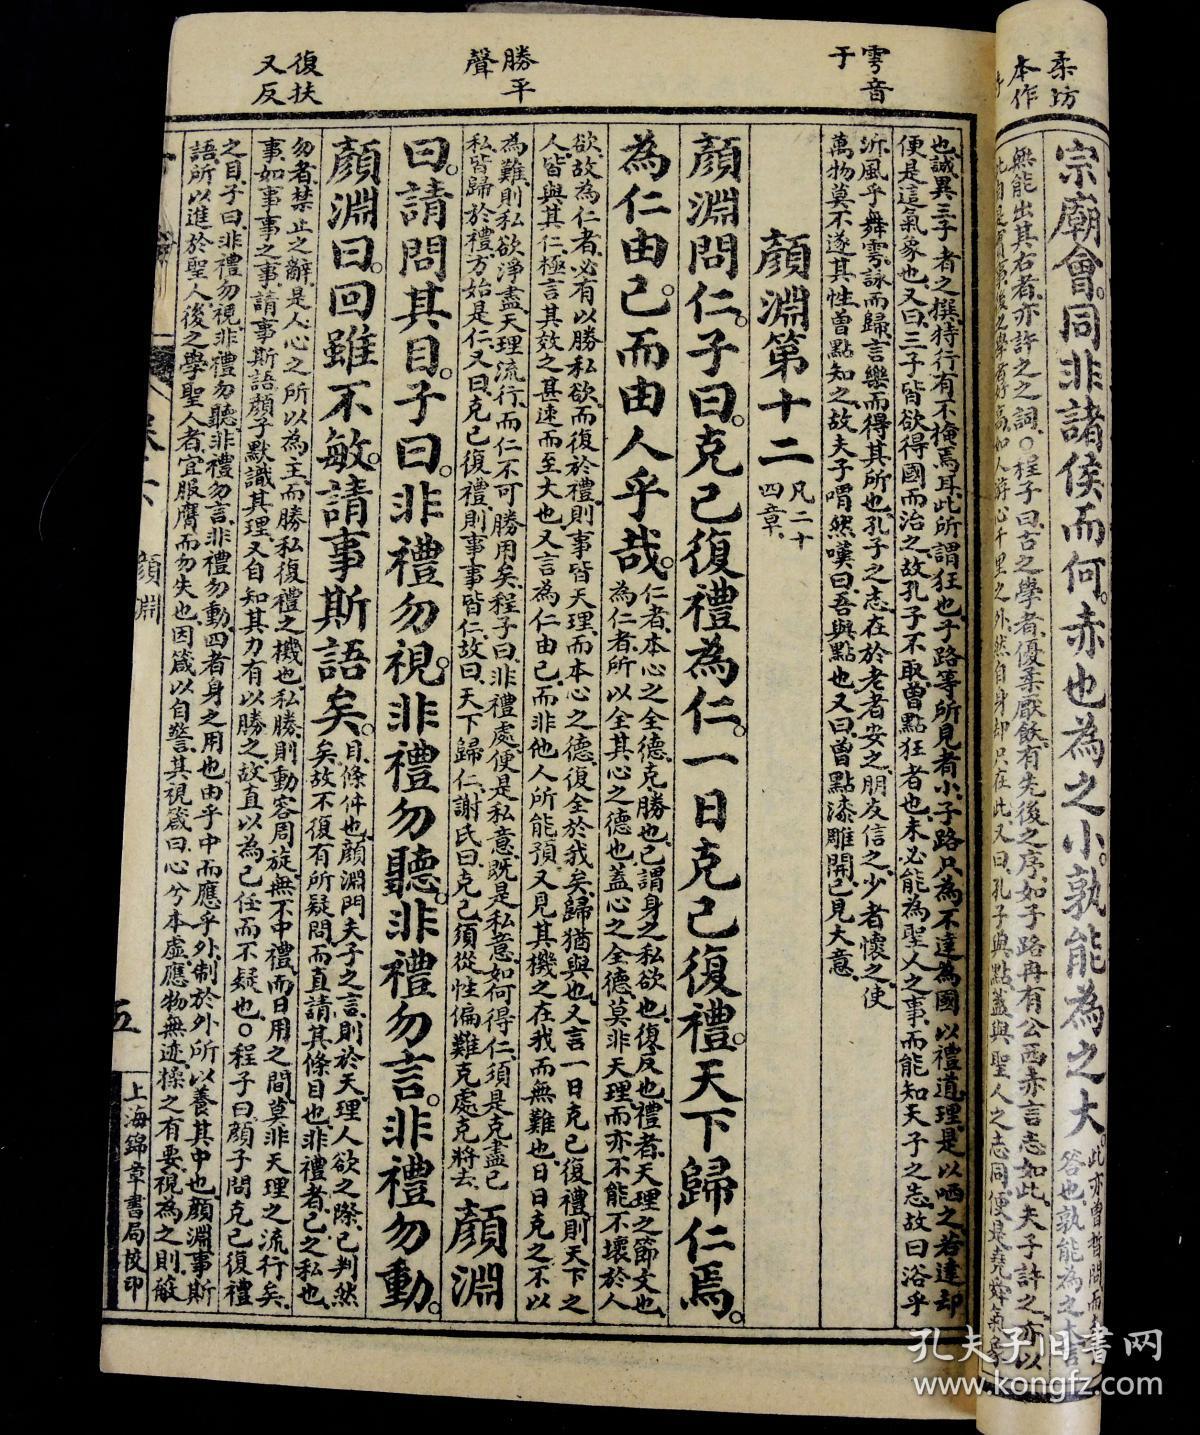 柔坊
本作
雩音
于
勝平
聲
復扶
又反
宗廟會同非諸侯而何赤也為之小孰能為之大
無能出其右者亦許之之詞○程子曰古之學者優柔厭飫有先後之序如子路冉有公西赤言志如此夫子許之亦以
也誠異三子者之撰特行有不掩焉耳此所謂狂也子路等所見者小子路只為不達為國以禮道理是以哂之若達却
便是這氣象也又曰三子皆欲得國而治之故孔子不取曾點狂者也未必能為聖人之事而能知夫子之志故曰浴乎
沂風乎舞雩詠而歸言樂而得其所也孔子之志在於老者安之朋友信之少者懷之使
萬物莫不遂其性曾點知之故夫子喟然嘆曰吾與點也又曰曾點漆雕開已見大意
顏淵第十二凡二十
四章
顏淵問仁子曰克己復禮為仁一日克己復禮天下歸仁焉
為仁由己而由人乎哉仁者本心之全德克勝也己謂身之私欲也復反也禮者天理之節文也
為仁者所以全其心之德也蓋心之全德莫非天理而亦不能不壞於人
欲故為仁者必有以勝私欲而復於禮則事皆天理而本心之德復全於我矣歸猶與也又言一日克己復禮則天下之
人皆與其仁極言其效之甚速而至大也又言為仁由己而非他人所能預又見其機之在我而無難也日日克之不以
為難則私欲淨盡天理流行而仁不可勝用矣程子曰非禮處便是私意既是私意如何得仁須是克盡己
私皆歸於禮方始是仁又曰克己復禮則事事皆仁故曰天下歸仁謝氏曰克己須從性偏難克處克將去
顏淵
曰請問其目子曰非禮勿視非禮勿聽非禮勿言非禮勿動
顏淵曰回雖不敏請事斯語矣目條件也顏淵聞夫子之言則於天理人欲之際已判然
矣故不復有所疑問而直請其條目也非禮者己之私也
勿者禁止之辭是人心之所以為主而勝私復禮之機也私勝則動容周旋無不中禮而日用之間莫非天理之流行矣
事如事事之事請事斯語顏子默識其理又自知其力有以勝之故直以為己任而不疑也○程子曰顏子問克己復禮
之目子曰非禮勿視非禮勿聽非禮勿言非禮勿動四者身之用也由乎中而應乎外制於外所以養其中也顏淵事斯
語所以進於聖人後之學聖人者宜服膺而勿失也因箴以自警其視箴曰心兮本虛應物無迹操之有要視為之則蔽
顏淵
五
上海錦章書局校印
孔夫子旧書网
www.kongfz.com